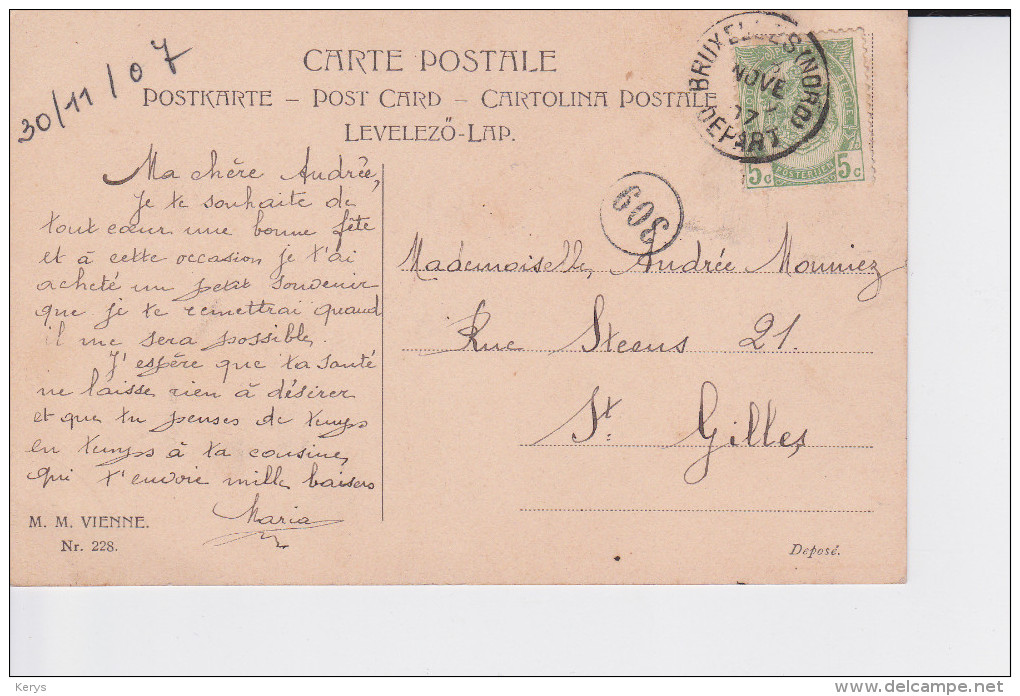 30/11/07
CARTE POSTALE
POSTKARTE – POST CARD – CARTOLINA POSTALE
LEVELEZŐ-LAP.
Ma chère Andrée,
Je te souhaite de
tout cœur une bonne fête
et à cette occasion je t'ai
acheté un petit souvenir
que je te remettrai quand
il me sera possible.
J'espére que ta santé
ne laisse rien à désirer
et que tu penses de temps
en temps à ta cousine,
qui t'envoie mille baisers
Maria
M. M. VIENNE.
Nr. 228.
BRUXELLES (NORD)
NOVE
DEPART
5c POSTERIJEN 5c
609
Mademoiselle, Andrée Monniez
Rue Steens 21.
St Gilles
Deposé.
Kerys
delcampe.net